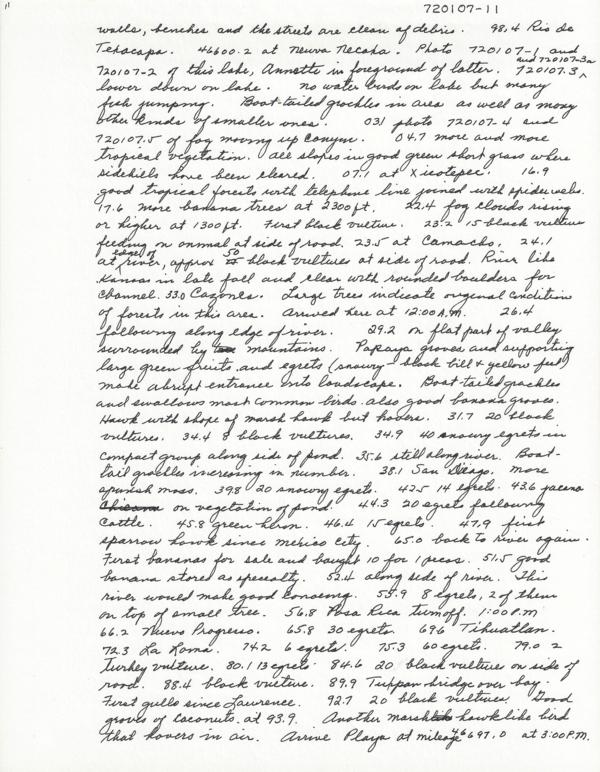 720107-11
walls, benches and the streets are clean of debris. 98.4 Rio de
Texcapa. 46600.2 at Neuva Necaxa. Photo 720107-1 and
and 720107-3a
720107-2 of this lake, Annette in foreground of latter. 720107.3
lower down on lake. no water birds on lake but many
fish jumping. Boat-tailed grackles in area as well as many
other kinds of smaller ones. 03.1 photo 720107-4 and
720107.5 of fog moving up canyon. 04.7 more and more
tropical vegetation. all slopes in good green short grass where
sidehills have been cleared. 07.1 at Xicotepec. 16.9
good tropical forests with telephone line joined with spiderwebs.
17.6 more banana trees at 2300 ft. 22.4 fog clouds rising
or higher at 1300 ft. First black vulture. 23.2 15 black vulture
feeding on animal at side of road. 23.5 at Camacho. 24.1
at edge of river, approx 50 black vultures at side of road. River like
Kansas in late fall and clear with rounded boulders for
channel. 33.0 Cazones. Large trees indicate original condition
of forests in this area. Arrived here at 12:00 A.M. 26.4
following along edge of river. 29.2 on flat part of valley
surrounded by mountains. Papaya groves and supporting
large green fruits and egrets (snowy - black bill & yellow feet)
make abrupt entrance into landscape. Boat tailed grackles
and swallows most common birds. also good banana groves.
Hawk with shape of marsh hawk but hovers. 31.7 20 black
vultures. 34.4 8 black vultures. 34.9 40 snowy egrets in
compact group along side of pond. 35.6 still along river. Boat-
tail grackles increasing in number. 38.1 San Diego. more
spanish moss. 39.8 20 snowy egrets. 42.5 14 egrets. 43.6 jacana
on vegetation of pond. 44.3 20 egrets following
Cattle. 45.8 green heron. 46.4 15 egrets. 47.9 first
sparrow hawk since mexico city. 65.0 back to river again.
First bananas for sale and bought 10 for 1 peso. 51.5 good
banana stores as specialty. 52.4 along side of river. This
river would make good canoeing. 55.9 8 egrets, 2 of them
on top of small tree. 56.8 Posa Rica turnoff. 1:00 P.M
66.2 Nuevo Progreso. 65.8 30 egrets. 69.6 Tihuatlan.
72.3 La Loma. 74.2 6 egrets. 75.3 60 egrets. 79.0 2
turkey vulture. 80.1 13 egrets. 84.6 20 black vulture on side of
road. 88.4 black vulture. 89.9 Tuxpan bridge over bay.
First gulls since Lawrence. 92.7 20 black vultures. Good
groves of coconuts at 93.9. Another marsh hawk like bird
that hovers in air. Arrive Playa at mileage 46697.0 at 3:00 P.M.